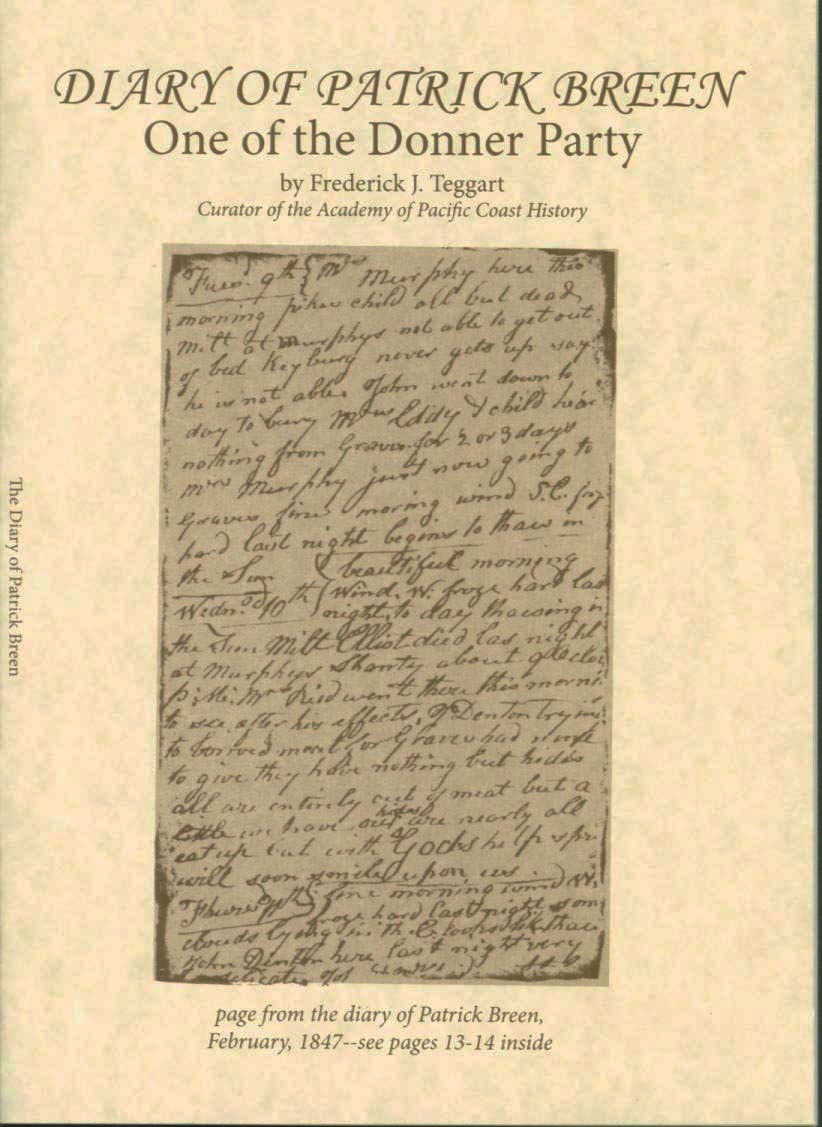 DIARY OF PATRICK BREEN
One of the Donner Party
by Frederick J. Teggart
Curator of the Academy of Pacific Coast History
Tues. 9th { Mrs Murphy here this
morning pikes child all but dead
Milt at Murphys not able to get out
of bed Keyburg never gets up say
he is not able. John went down to
day to bury Mrs Eddy & child hear
nothing from Graves for 2 or 3 days
Mrs Murphy just now going to
Graves fine moring wind S.E. froz
hard last night begins to thaw in
the Sun
beautiful morning
Wednd 10th { Wind. W. froze hard las
night, to day thawing in
the Sun Milt Elliot died las night
at Murphys Shanty about 9 Oclo
P: M: Mrs Reid went there this morni
to see after his effects. J Denton tryin
to borrow meat for Graves had none
to give they have nothing but hides
all are entirely out of meat but a
little we have our hides are nearly all
eat up but with Gods help spri
will soon smile upon us.
Thursd 11th } fine morning wind W.
froze hard last night som
clouds lying in the E. looks like thaw
John Denton here last night very
delicate.
page from the diary of Patrick Breen,
February, 1847--see pages 13-14 inside
The Diary of Patrick Breen